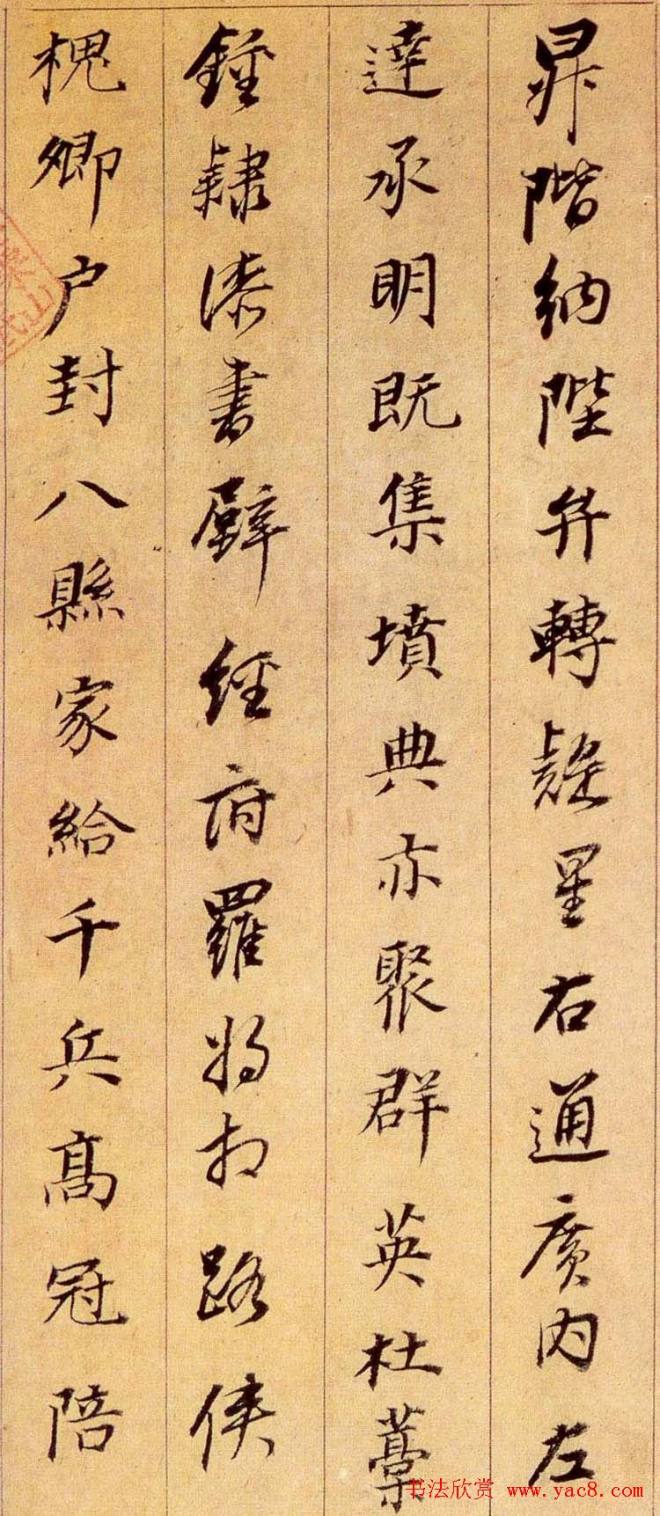 昇階納陛弁轉疑星右通廣内左
達承明既集墳典亦聚群英杜藁
鍾隸漆書壁經府羅将相路俠
槐卿户封八縣家給千兵高冠陪
书法欣赏 www.yac8.com